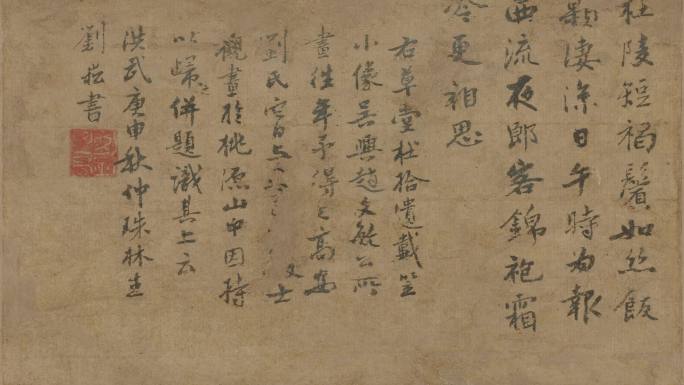 杜陵短褐鬢如絲飯
顆淒涼日午時為報
西流夜郎客錦袍霜
冷更相思
右草堂杜拾遺戴笠
小像吳興趙文敏公所
畫往年予得之高安
劉氏
文士
觀畫於桃源山中因持
以歸併題識其上云
洪武庚申秋仲珠林生
劉崧書